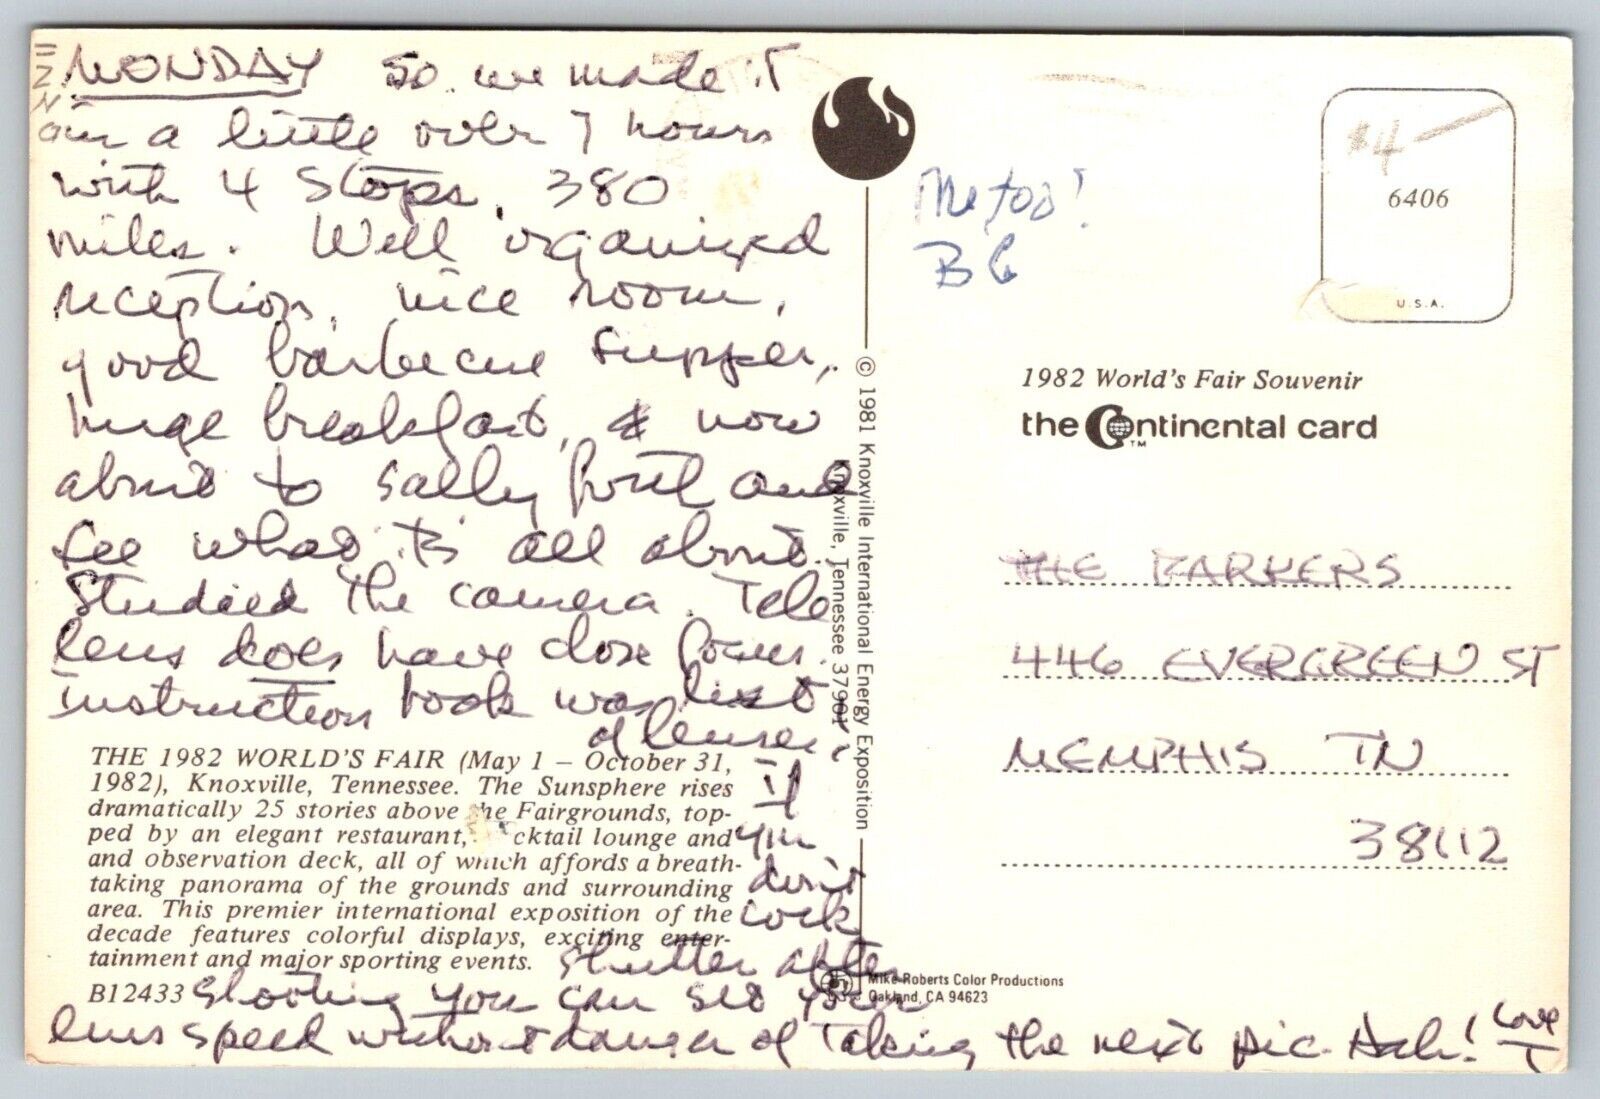 MONDAY So we made it
in a little over 7 hours
with 4 stops, 380
miles. Well organized
reception, nice room,
good barbecue supper,
huge breakfast, & now
about to sally forth and
see what it's all about.
Studied the camera. Tele
lens does have close focus.
instruction book was list
of lenses.
If
you
don't
cock
shutter after
shooting you can see your
lens speed without danger of taking the next pic. Hah! Love
T
THE 1982 WORLD'S FAIR (May 1 – October 31,
1982), Knoxville, Tennessee. The Sunsphere rises
dramatically 25 stories above the Fairgrounds, top-
ped by an elegant restaurant, cktail lounge and
and observation deck, all of which affords a breath-
taking panorama of the grounds and surrounding
area. This premier international exposition of the
decade features colorful displays, exciting enter-
tainment and major sporting events.
B12433
© 1981 Knoxville International Energy Exposition
Knoxville, Tennessee 37901
Mike Roberts Color Productions
Oakland, CA 94623
Me too!
BG
$4—
6406
U.S.A.
1982 World's Fair Souvenir
the Continental card
TM
THE PARKERS
446 EVERGREEN ST
MEMPHIS TN
38112